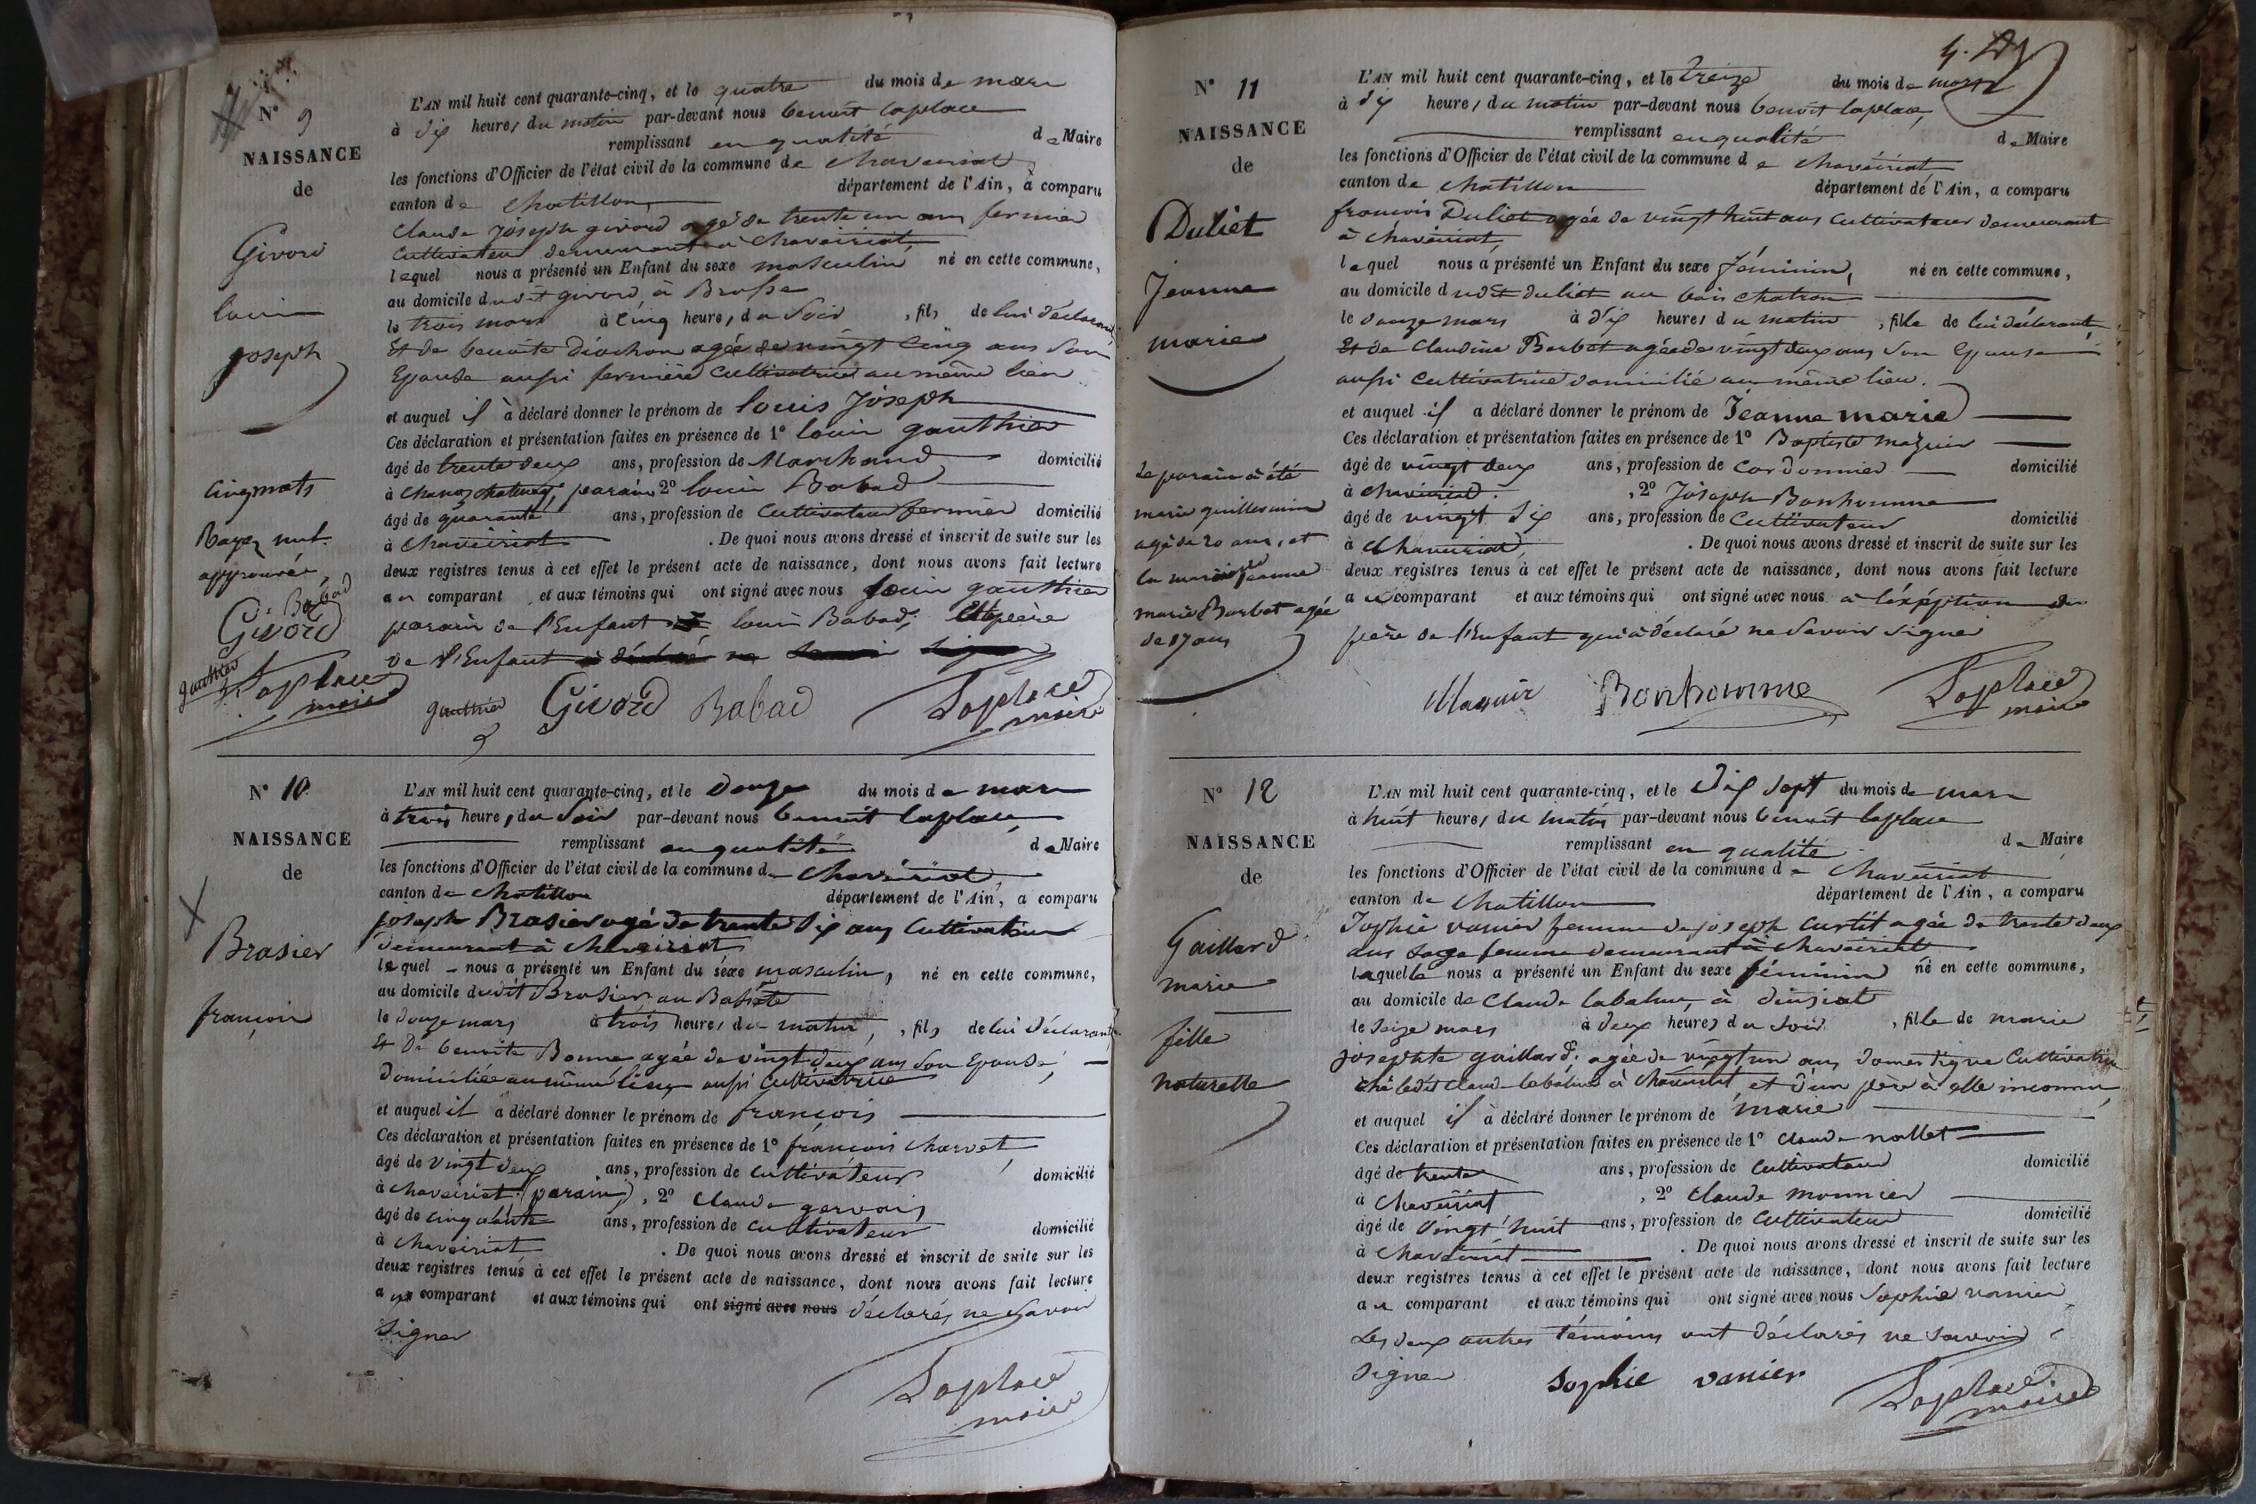 N° 9
NAISSANCE
de
Givord
louis
joseph
cinq mots
Rayez nul
approuvée,
Babad
Givord
gauthier
Laplace
maire
L'AN mil huit cent quarante-cinq, et le quatre du mois de mars
à dix heures du matin par-devant nous benoit laplace
remplissant en qualité de Maire
les fonctions d'Officier de l'état civil de la commune de chaveiriat
canton de chatillon département de l'Ain, a comparu
claude joseph givord agé de trente un ans fermier
cultivateur demeurant a chaveiriat,
lequel nous a présenté un Enfant du sexe masculin né en cette commune,
au domicile dudit givord, à Brosse
le trois mars à cinq heures du soir, fils de lui déclarant,
Et de benoite diochon agée de vingt cinq ans son
Epouse aussi fermière cultivatrice au même lieu
et auquel il à déclaré donner le prénom de louis joseph
Ces déclaration et présentation faites en présence de 1° louis gauthier
âgé de trente deux ans, profession de Marchand domicilié
à chanoz chatenay, parain 2° louis Babad
âgé de quarante ans, profession de cultivateur fermier domicilié
à chaveiriat. De quoi nous avons dressé et inscrit de suite sur les
deux registres tenus à cet effet le présent acte de naissance, dont nous avons fait lecture
au comparant et aux témoins qui ont signé avec nous louis gauthier
parain de l'Enfant louis Babad, Et père
de l'Enfant a déclaré ne savoir signer
gauthier Givord Babad Laplace
maire
N° 10
NAISSANCE
de
Brasier
françois
L'AN mil huit cent quarante-cinq, et le douze du mois de mars
à trois heures du soir par-devant nous benoit laplace,
remplissant en qualité de Maire
les fonctions d'Officier de l'état civil de la commune de chavéiriat,
canton de chatillon département de l'Ain, a comparu
joseph Brasier agé de trente six ans cultivateur
demeurant à chaveiriat
lequel nous a présenté un Enfant du sexe masculin, né en cette commune,
au domicile dudit Brasier au
le douze mars à trois heures du matin, fils de lui déclarant,
Et De benoite Bonne agée de vingt deux ans son Epouse,
domiciliée au même lieu, aussi cultivatrice
et auquel il a déclaré donner le prénom de françois
Ces déclaration et présentation faites en présence de 1° françois charvet,
âgé de vingt deux ans, profession de cultivateur domicilié
à chaveiriat (parain), 2° claude gervais
âgé de cinquante ans, profession de cultivateur domicilié
à chaveiriat. De quoi nous avons dressé et inscrit de suite sur les
deux registres tenus à cet effet le présent acte de naissance, dont nous avons fait lecture
au comparant et aux témoins qui ont signé avec nous déclarés ne savoir
signer
Laplace
maire
N° 11
NAISSANCE
de
Duliet
Jeanne
marie
Le parain a été
marie guillermin
agé de 20 ans, et
la maraine jeanne
marie Barbet agée
de 17 ans
L'AN mil huit cent quarante-cinq, et le treize du mois de mars
à dix heures du matin par-devant nous benoit laplace,
remplissant en qualité de Maire
les fonctions d'Officier de l'état civil de la commune de chavéiriat
canton de chatillon département de l'Ain, a comparu
françois Duliet agée de vingt huit ans cultivateur demeurant
à chavéiriat,
lequel nous a présenté un Enfant du sexe féminin, né en cette commune,
au domicile dudit duliet au bois chatron
le douze mars à dix heures du matin, fille de lui déclarant,
Et de claudine Barbet agée de vingt deux ans son Epouse
aussi cultivatrice domicilié au même lieu.
et auquel il a déclaré donner le prénom de Jeanne marie
Ces déclaration et présentation faites en présence de 1° Baptiste maguin
âgé de vingt deux ans, profession de cordonnier domicilié
à chavéiriat, 2° joseph Bonhomme
âgé de vingt six ans, profession de cultivateur domicilié
à chaveiriat. De quoi nous avons dressé et inscrit de suite sur les
deux registres tenus à cet effet le présent acte de naissance, dont nous avons fait lecture
au comparant et aux témoins qui ont signé avec nous à l'éxéption du
père de l'Enfant qui a déclaré ne savoir signer
Bonhomme Laplace
maire
N° 12
NAISSANCE
de
Gaillard
marie
fille
naturelle
L'AN mil huit cent quarante-cinq, et le dix sept du mois de mars
à huit heures du matin par-devant nous benoit laplace
remplissant en qualité de Maire
les fonctions d'Officier de l'état civil de la commune de chavéiriat
canton de chatillon département de l'Ain, a comparu
Sophie vanier femme de joseph curtit agée de trente deux
ans sage femme demeurant à chaveiriat
laquelle nous a présenté un Enfant du sexe féminin né en cette commune,
au domicile de claude labalme, à
le seize mars à deux heures du soir, fille de marie
josephte gaillard, agée de vingt un ans domestique cultivatrice
ché ledit claude labalme à chavéiriat et d'un père à elle inconnu,
et auquel il à déclaré donner le prénom de marie
Ces déclaration et présentation faites en présence de 1° claude nallet
âgé de trente ans, profession de cultivateur domicilié
à chaveiriat, 2° claude monnier
âgé de vingt huit ans, profession de cultivateur domicilié
à chavéiriat. De quoi nous avons dressé et inscrit de suite sur les
deux registres tenus à cet effet le présent acte de naissance, dont nous avons fait lecture
au comparant et aux témoins qui ont signé avec nous sophie vanier,
Les deux autres témoins ont déclarés ne savoir
signer
Sophie vanier Laplace
maire